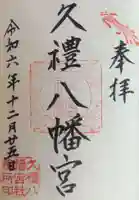 奉拝
久禮八幡宮
令和六年十二月廿五日